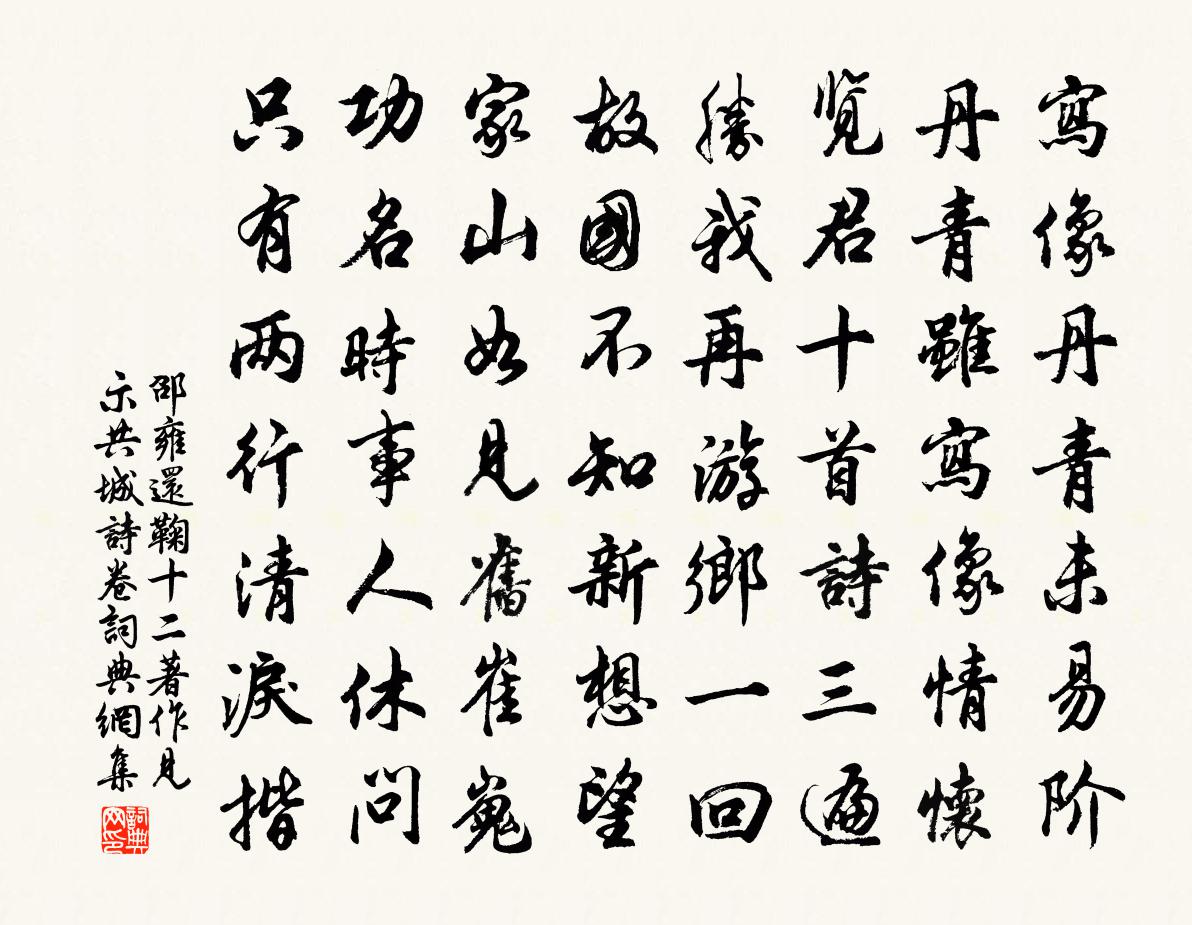 寫像丹青未易阶
丹青雖寫像情懷
覽君十首詩三遍
勝我再游鄉一回
故國不知新想望
家山如見舊崔嵬
功名時事人休問
只有两行清淚揩
邵雍還鞠十二著作見
示共城詩卷詞典網集
詞典
网印